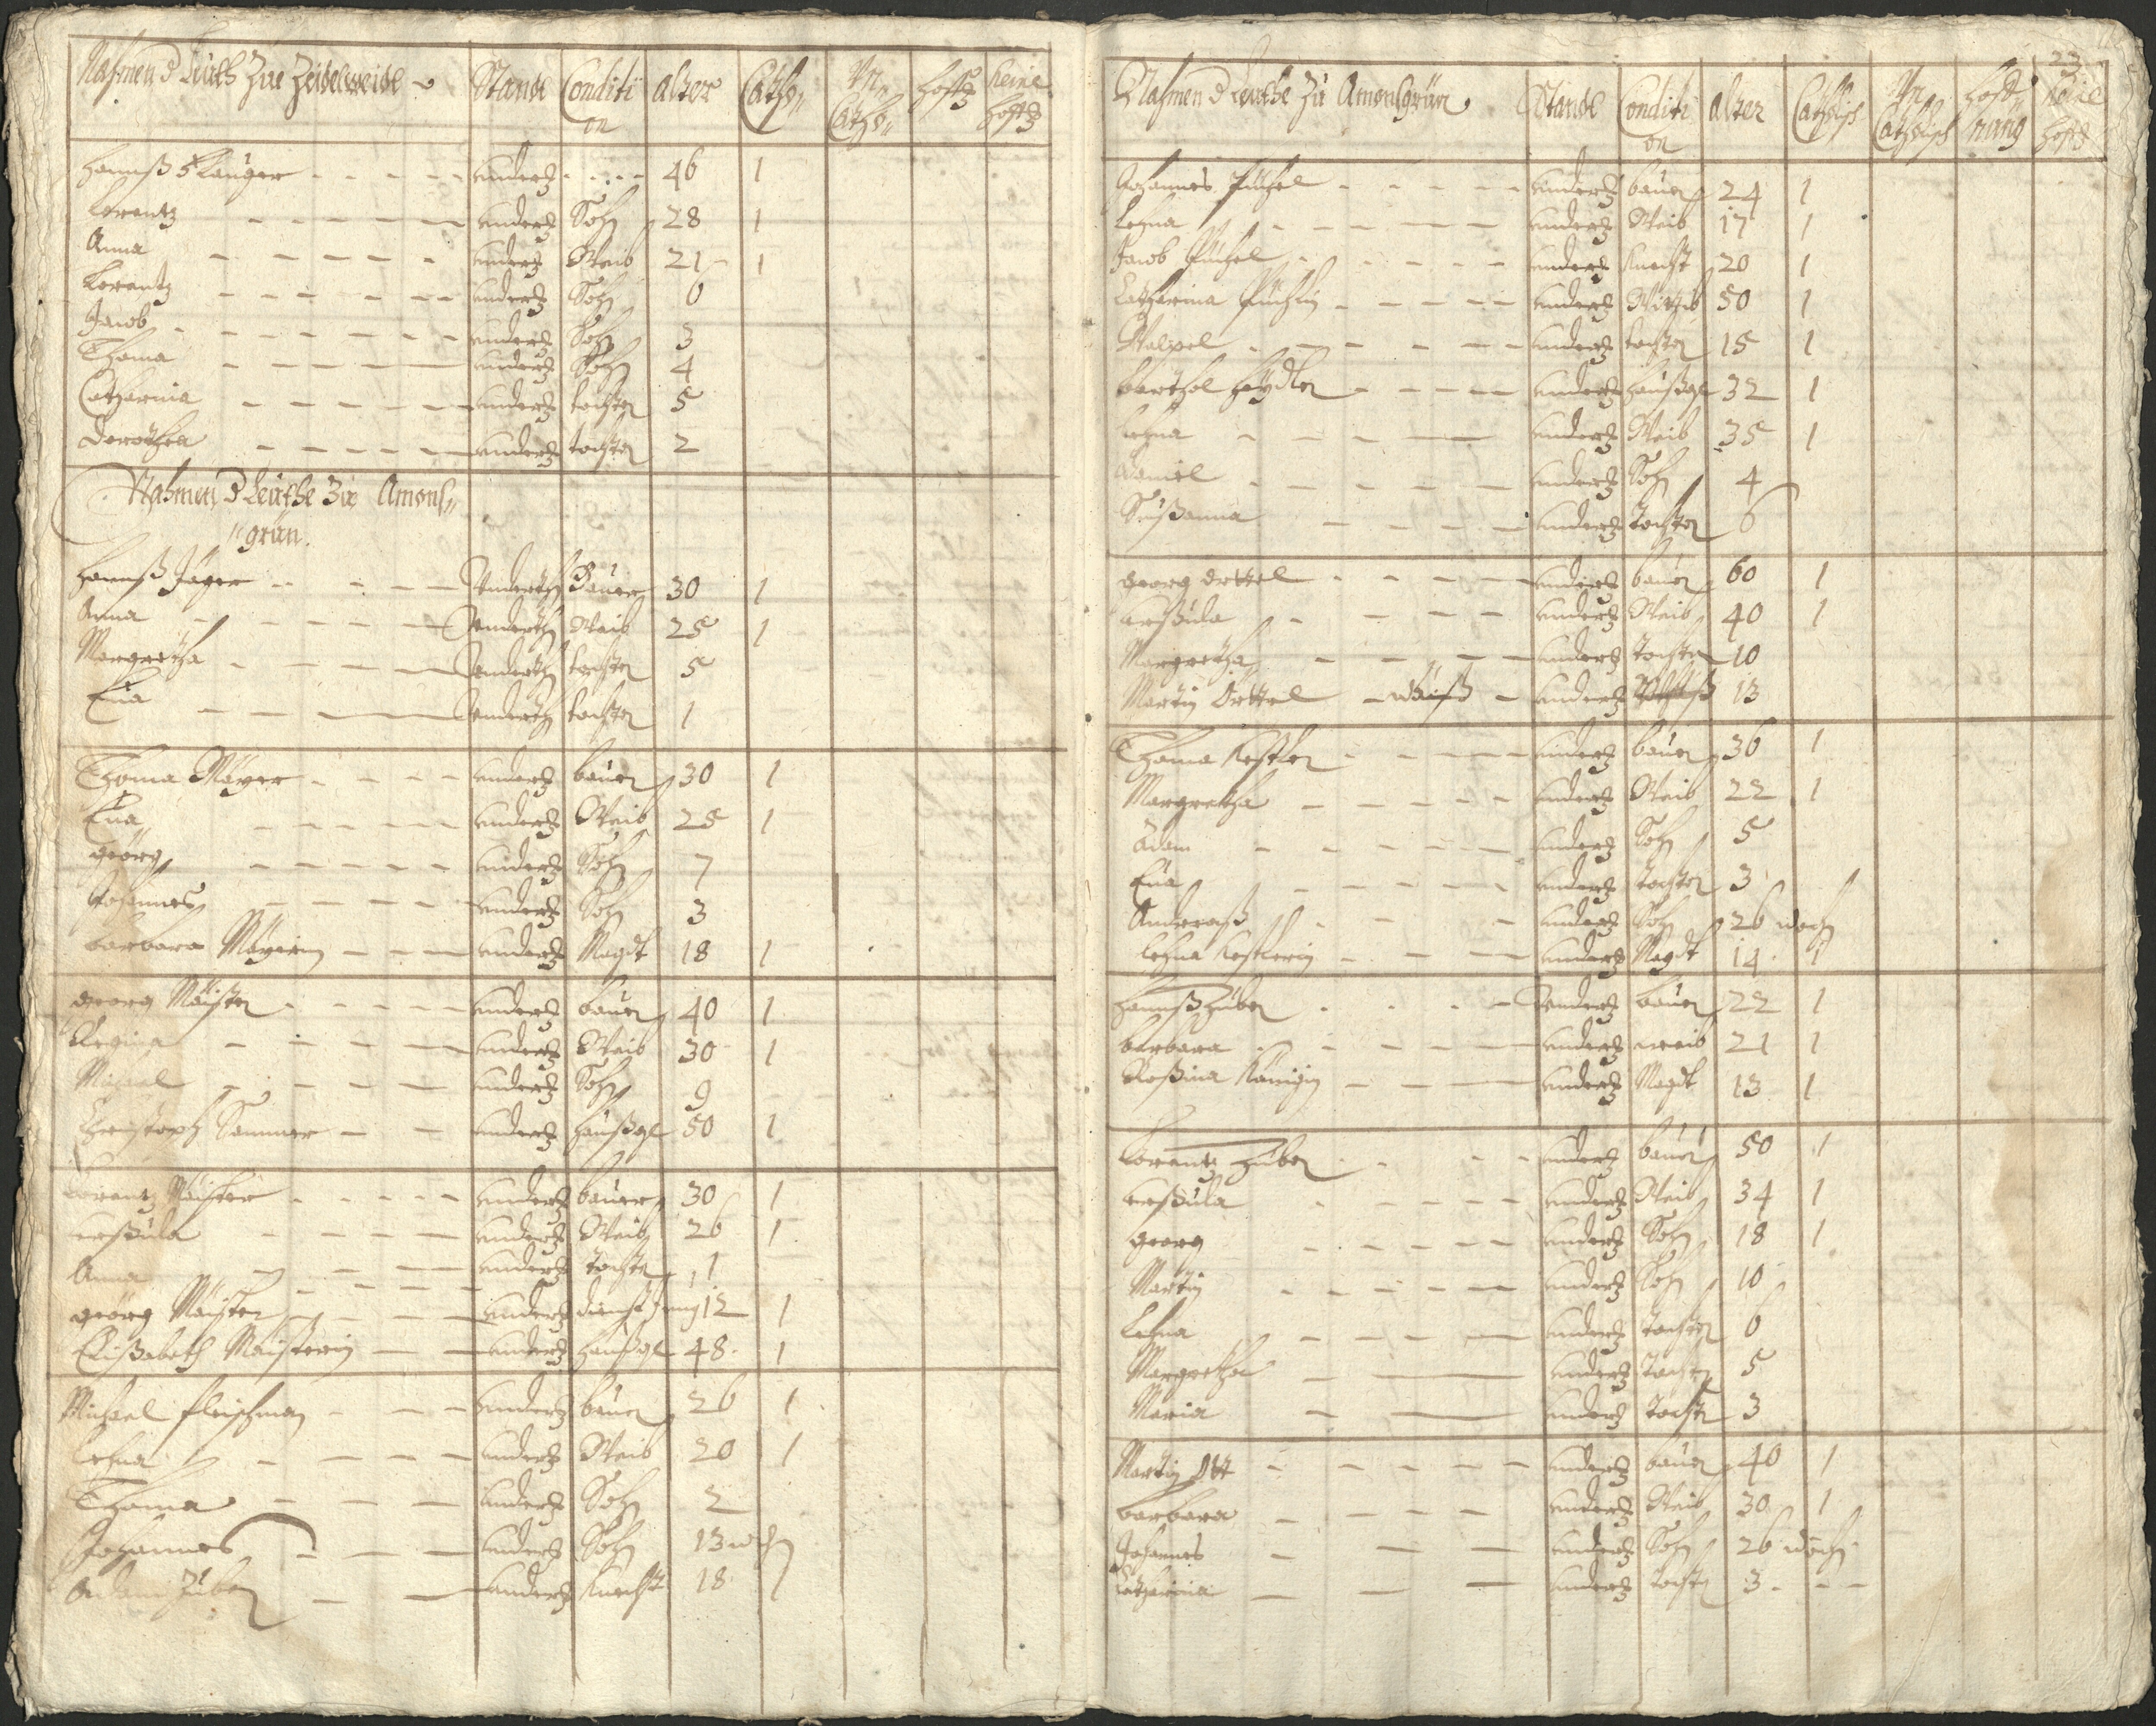 Nahmen d Leuth Zue Zeidelweide Stande Conditi on alter Catho„ Vn Catho„ hoffg keine hoffg
Hannß Klauger underth 46 1
Lorentz underth Sohn 28 1
Anna underth Weib 21 1
Lorentz underth Sohn 6
Jacob underth Sohn 3
Thoma underth Sohn 4
Catharina underth tochter 5
Dorothea underth tochter 2
Nahmen d Leuthe Zue Amons„
„grün.
Hannß Jäger Underth Bauer 30 1
Anna Underth Weib 25 1
Margretha Underth tochter 5
Eua Underth tochter 1
Thoma Mayer underth bauer 30 1
Eua underth Weib 25 1
Georg underth Sohn 7
Johannes underth Sohn 3
Barbara Mayerin underth Magdt 18 1
Georg Maister underth bauer 40 1
Regina underth Weib 30 1
Michael underth Sohn 9
Christoph Sammer underth haußgl 50 1
Lorentz Maister underth bauer 30 1
Urßula underth Weib 26 1
Anna underth Tochter 1
Georg Maister underth dienstjung 12 1
Elißabeth Maisterin underth haußgl 48 1
Michael fleischman underth bauer 26 1
Lehna underth Weib 20 1
Thoma underth Sohn 2
Johannes underth Sohn 13 wch
Adam Zuber underth Knecht 18 1
23
Nahmen d Leuthe Zu Amonsgrün Stande Conditi on alter Catholisch Vn Catholisch hoff nung keine hoffg
Johannes Püchel underth bauer 24 1
Lehna underth Weib 17 1
Jacob Püchel underth Knecht 20 1
Catharina Püchlin underth Wittib 50 1
Walpel underth tochter 15 1
Barthol heydler underth haußgl 32 1
Lehna underth Weib 35 1
Daniel underth Sohn 4
Sußanna underth Tochter 6
Georg Örttel underth bauer 60 1
Urßula underth Weib 40 1
Margretha underth Tochter 10
Martin Örttel waiß underth 13
Thoma Kestler underth bauer 36 1
Margretha underth Weib 22 1
Adam underth Sohn 5
Eua underth tochter 3
Andreaß underth Sohn 26 woch
Lehna Kestlerin underth Magdt 14 1
Hannß Zuber underth bauer 22 1
Barbara underth weib 21 1
Roßina Königin underth Magdt 13 1
Lorentz Zuber underth bauer 50 1
Urßula underth Weib 34 1
Georg underth Sohn 18 1
Martin underth Sohn 10
Lehna underth Tochter 6
Margretha underth Tochter 5
Maria underth Tochter 3
Martin Ott underth bauer 40 1
Barbara underth Weib 30 1
Johannes underth Sohn 26 woch
Catharina underth Tochter 3